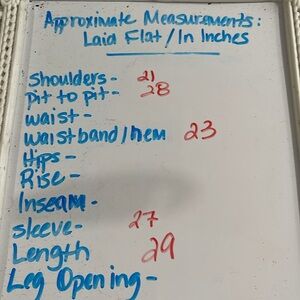 Approximate Measurements:
Laid Flat/In Inches
Shoulders- 21
pit to pit- 28
waist-
waistband/hem 23
Hips-
Rise-
Inseam-
sleeve- 27
Length 29
Leg Opening-